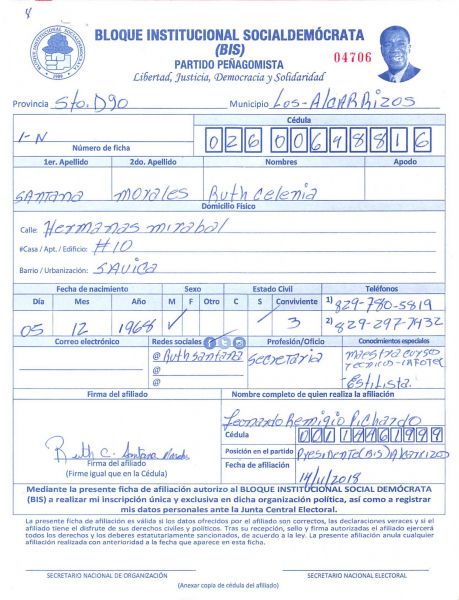 BLOQUE INSTITUCIONAL SOCIALDEMÓCRATA
(BIS)
PARTIDO PEÑAGOMISTA
04706
Libertad, Justicia, Democracia y Solidaridad
Provincia Sto. Dgo Municipio Los-Alcarrizos
Cédula
1-N
02600698816
Número de ficha
1er. Apellido 2do. Apellido Nombres Apodo
Santana Morales Ruth Celenia
Domicilio Físico
Calle: Hermanas mirabal
#Casa / Apt. / Edificio: #10
Barrio / Urbanización: Savica
Fecha de nacimiento Sexo Estado Civil Teléfonos
Día Mes Año M F Otro C S Conviviente 1) 829-780-5819
05 12 1968 3 2) 829-297-7432
Correo electrónico Redes sociales Profesión/Oficio Conocimientos especiales
@ Ruthsantana Secretaria maestra curso
@ Tecnico-infotep
@ Estilista.
Firma del afiliado Nombre completo de quien realiza la afiliación
Leonardo Remigio Pichardo
Cédula
Ruth C. Santana
Posición en el partido Presidente (BIS) Alcarrizo
Firma del afiliado
(Firme igual que en la Cédula)
Fecha de afiliación 14/11/2018
Mediante la presente ficha de afiliación autorizo al BLOQUE INSTITUCIONAL SOCIAL DEMÓCRATA
(BIS) a realizar mi inscripción única y exclusiva en dicha organización política, así como a registrar
mis datos personales ante la Junta Central Electoral.
La presente ficha de afiliación es válida si los datos ofrecidos por el afiliado son correctos, las declaraciones veraces y si el
afiliado tiene el disfrute de sus derechos civiles y políticos. Tras su recepción, sello y firma autorizados el afiliado ejercerá
todos los derechos y los deberes estatutariamente sancionados, de acuerdo a la ley. La presente afiliación anula cualquier
afiliación realizada con anterioridad a la fecha que aparece en esta ficha.
SECRETARIO NACIONAL DE ORGANIZACIÓN SECRETARIO NACIONAL ELECTORAL
(Anexar copia de cédula del afiliado)